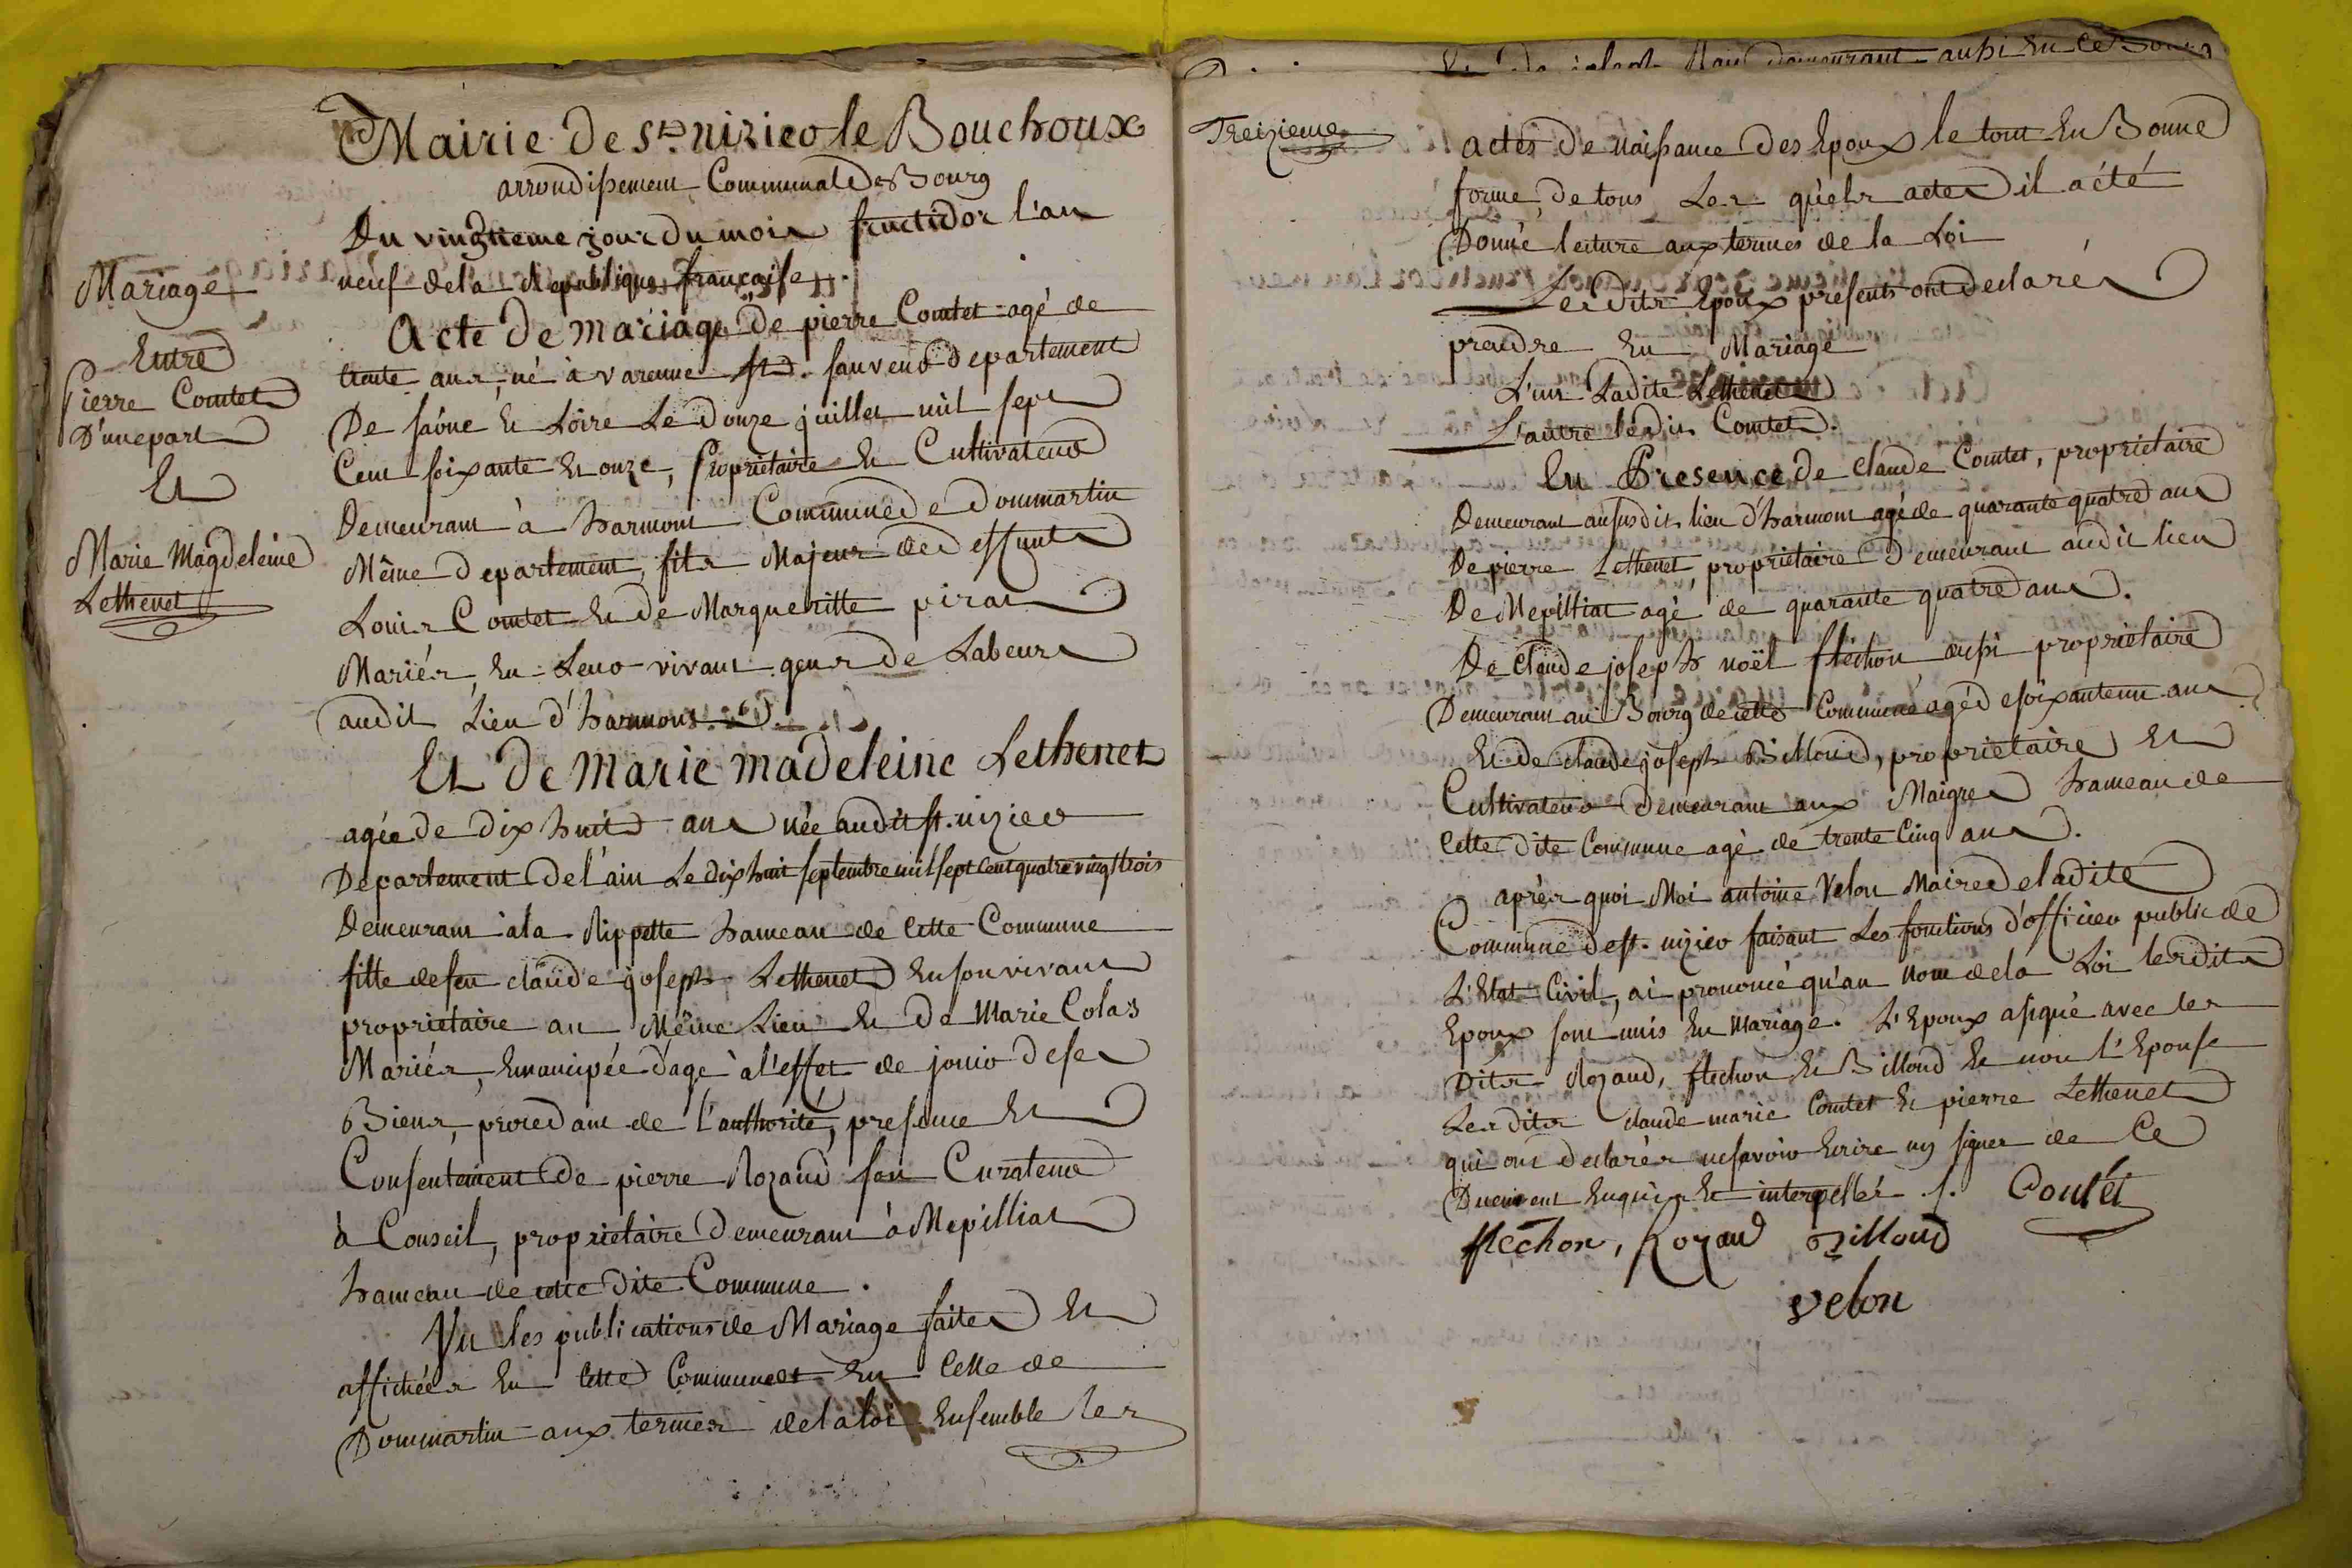 Mairie de St. nizier le Bouchoux
arrondissement Communal de Bourg
Du vingtieme jour du mois fructidor l'an
neuf de la Republique française.
Mariage
Entre
Pierre Comtet
D'une part
Et
Marie Magdeleine
Lethenet
Acte de mariage de pierre Comtet agé de
trente ans, né à varenne St. sauveur departement
De saône et Loire Le douze juillet mil sept
Cent soixante et onze, Proprietaire et Cultivateur
Demeurant à harmont Commune de dommartin
Même departement, fils Majeur de deffunts
Louis Comtet et de Margueritte pirat
Mariés, en Leur vivant gens de Labeurs
audit Lieu d'harmont.
Et de Marie madeleine Lethenet
agée de dix huit ans née audit st. nizier
Departement de l'ain Le dix huit septembre mil sept cent quatre vingt trois
Demeurant à la Rippette hameau de cette Commune
fille de feu claude joseph Lethenet en son vivant
proprietaire au Même Lieu et de Marie Colas
Mariés, Emancipée d'age à l'effet de jouir de ses
Biens, procedant de l'authorité, presence et
Consentement de pierre Rozand son Curateur
à Conseil, proprietaire demeurant à Mepilliat
hameau de cette dite Commune.
Vu les publications de Mariage faites et
affichées en cette Commune et en celle de
Dommartin aux termes de la loi Ensemble les
demeurant aussi en ce Bourg
Treizieme
actes de naissance des Epoux le tout en Bonne
forme, de tous Les quels actes il a été
Donné lecture aux termes de la Loi
Les dits Epoux presents ont declaré
prendre en Mariage
L'un Ladite Lethenet
L'autre ledit Comtet.
En Presence de claude Comtet, proprietaire
Demeurant au susdit lieu d'harmont agé de quarante quatre ans
De pierre Lethenet, proprietaire demeurant audit lieu
De Mepilliat agé de quarante quatre ans.
De claude joseph noël flechon aussi proprietaire
Demeurant au Bourg de cette Commune agé de soixante un ans
Et de claude joseph Billoud, proprietaire et
Cultivateur demeurant aux Maigres hameau de
cette dite Commune agé de trente Cinq ans.
après quoi Moi antoine Velon Maire de ladite
Commune de st. nizier faisant Les fonctions d'officier public de
L'Etat Civil, ai prononcé qu'au nom de la Loi lesdits
Epoux sont unis en mariage. L'Epoux a signé avec les
Dits Rozand, flechon et Billoud et non l'Epouse
Les dits claude marie Comtet et pierre Lethenet
qui ont declarés ne savoir Ecrire ny signer de ce
Duement Enquis et interpellés ./. Contet
flechon, Rozand Billoud
Velon